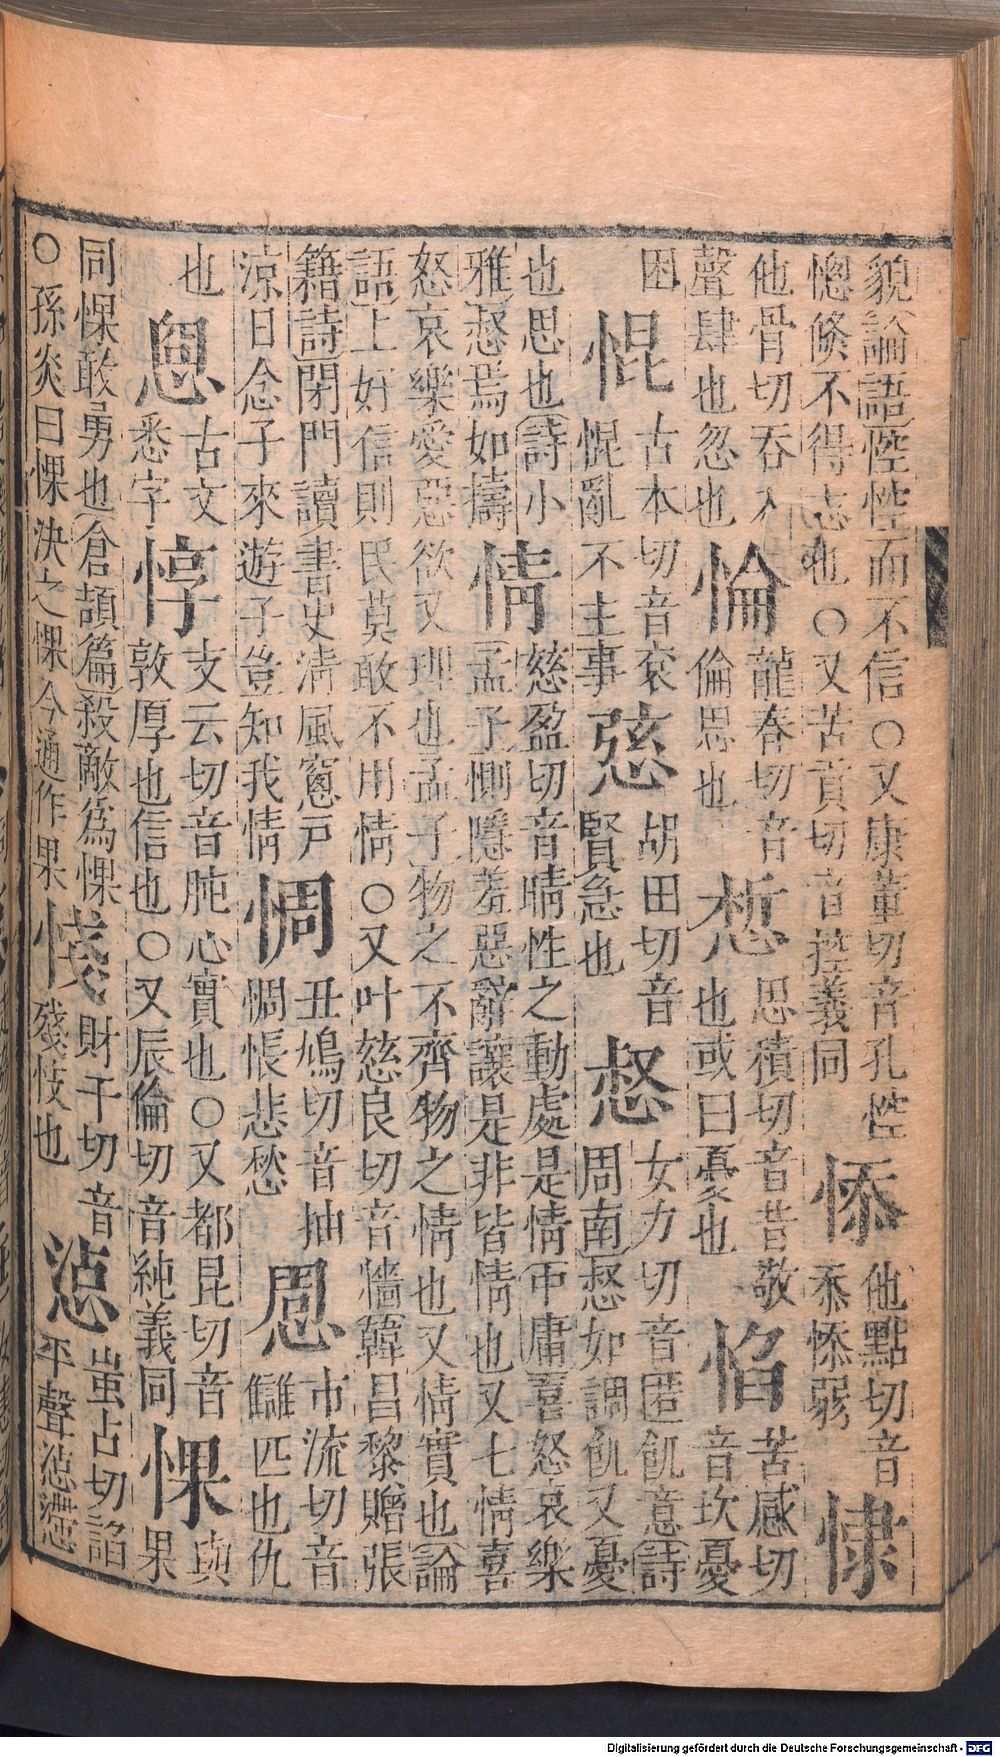 貌論語悾悾而不信○又康董切音孔悾
愡倏不得志也○又苦貢切音控義同
悿
他點切音
忝悿弱
㥆
他骨切吞入
聲肆也忽也
惀
龍春切音
倫思也
惁
思積切音昔敬
也或曰憂也
惂
苦感切
音坎憂
困
惃
古本切音衮
惃亂不主事
胡田切音
賢急也
惄
女力切音匿飢意詩
周南惄如調飢又憂
也思也詩小
雅惄焉如擣
情
慈盈切音晴性之動處是情中庸喜怒哀樂
孟子惻隱羞惡辭讓是非皆情也又七情喜
怒哀樂愛惡欲又理也孟子物之不齊物之情也又情實也論
語上好信則民莫敢不用情○又叶慈良切音牆韓昌黎贈張
籍詩閉門讀書史淸風窻戸
涼日念子來遊子豈知我情
惆
丑鳩切音抽
惆悵悲愁
㤽
市流切音
讎匹也仇
也
恖
古文
悉字
惇
支云切音肫心實也○又都昆切音
敦厚也信也○又辰倫切音純義同
惈
與
果
同惈敢勇也倉頡篇殺敵爲惈
○孫炎曰惈決之惈今通作果
㥇
財干切音
殘忮也
惉
蚩占切諂
平聲惉懘
Digitalisierung gefördert durch die Deutsche Forschungsgemeinschaft - DFG